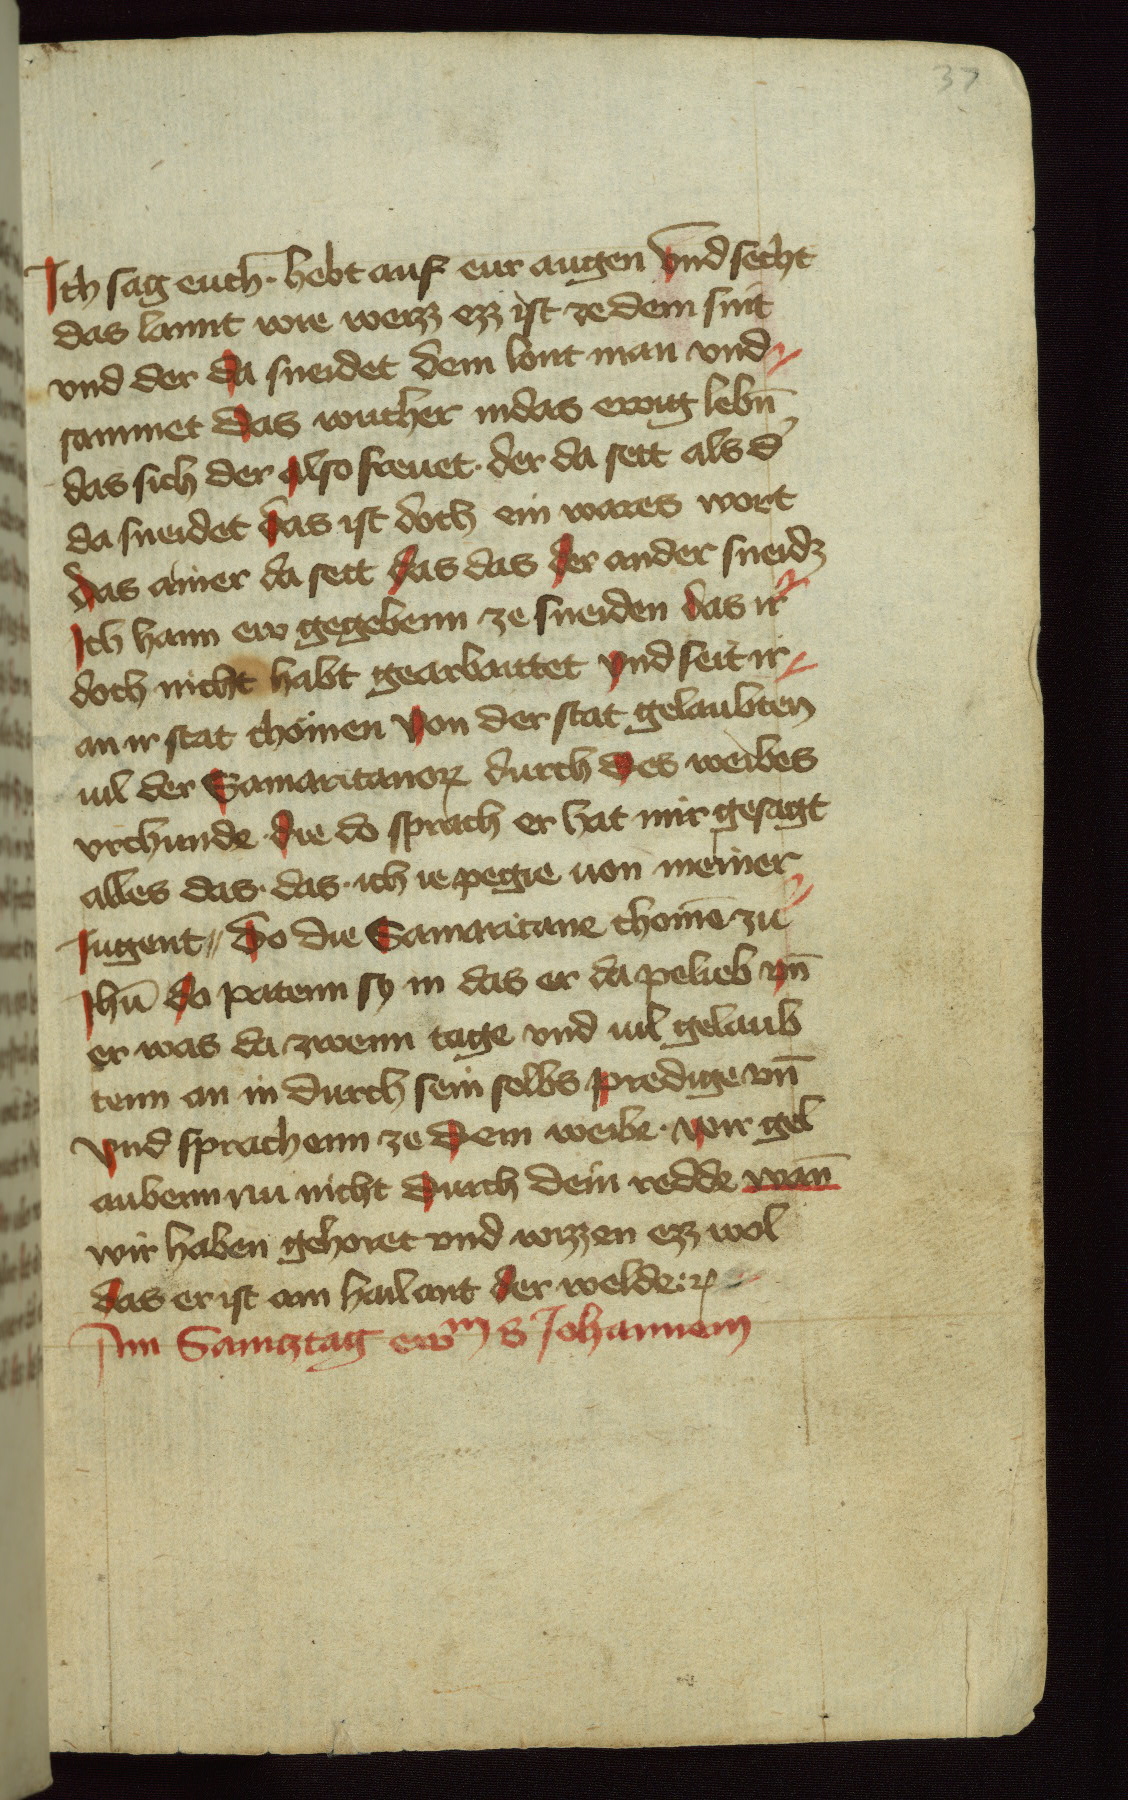 37
Ich sag euch · hebt auf eur augen vnd secht
das lannt wie weizz ezz ist ze dem snit
vnd der da sneidet dem lont man vnd
sammet das wucher in das ewig lebn̄
das sich der also freuet · der da sett als d᷑
da sneidet das ist doch ein wares wort
das ainer da sett das das der ander sneidꝫ
Ich hann ew gegebenn ze sneiden das ir
doch nicht habt gearbaittet vnd seit ir
an ir stat chömen Von der stat gelaubten
uil der Samaritanoꝝ durch des weibes
vrchunde · die do sprach er hat mir gesagt
alles das · das · ich ie pegie uon meiner
Jugent // Do die Samaritane chomē zu
Jhū do patenn sy in das er da pelieb vn̄
er was da zwenn tage vnd uil gelaub
tenn an in durch sein selbs predige vn̄
vnd sprachenn ze dem weibe · wir gel
aubenn nu nicht durch dein redde wan̄
wir haben gehoret vnd wizzen ezz wol
das er ist ain hailant der welde
Am Samcztag ewᵐ S Johannem